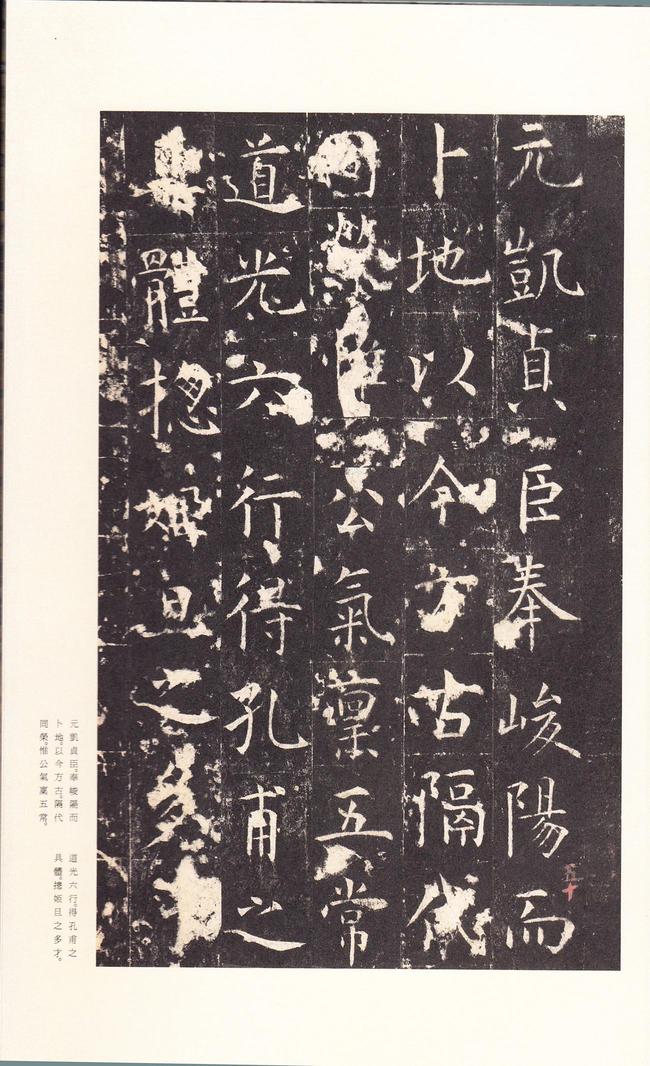 元凱貞臣奉峻陽而
卜地以今方古隔代
同榮惟公氣稟五常
道光六行得孔甫之
具體摠姬旦之多才
五十
元凱貞臣。奉峻陽而
卜地。以今方古。隔代
同榮。惟公氣稟五常。
道光六行。得孔甫之
具體。摠姬旦之多才。